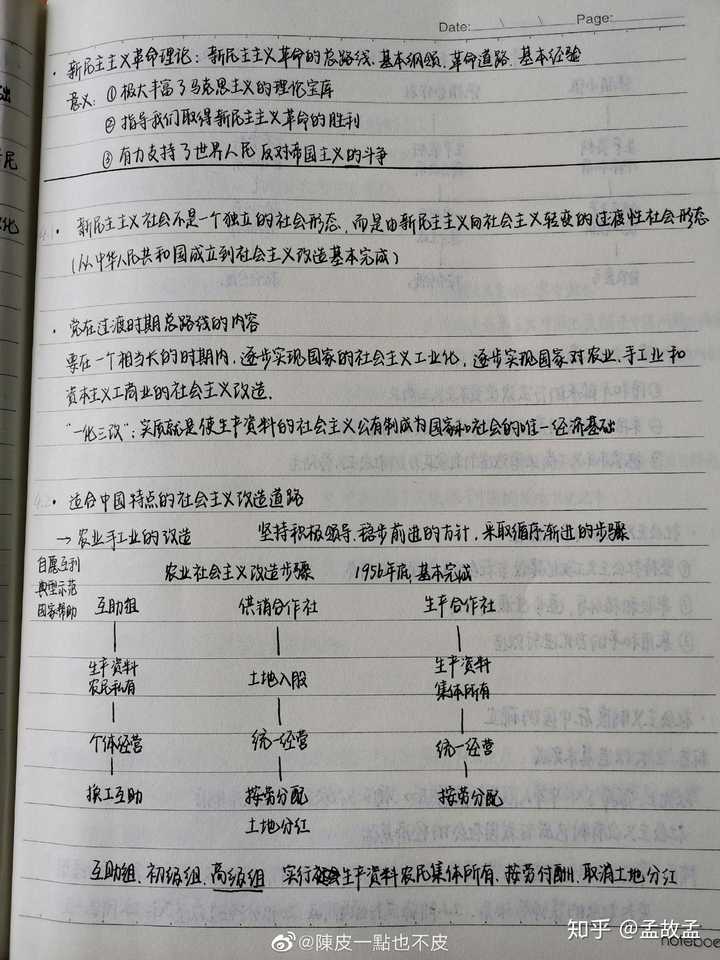 Date: Page:
· 新民主主义革命理论：新民主主义革命的总路线、基本纲领、革命道路、基本经验
意义：①极大丰富了马克思主义的理论宝库
②指导我们取得新民主主义革命的胜利
③有力支持了世界人民反对帝国主义的斗争
· 新民主主义社会不是一个独立的社会形态，而是由新民主主义向社会主义转变的过渡性社会形态
（从中华人民共和国成立到社会主义改造基本完成）
· 党在过渡时期总路线的内容
要在一个相当长的时期内，逐步实现国家的社会主义工业化，逐步实现国家对农业、手工业和
资本主义工商业的社会主义改造.
“一化三改”：实质就是使生产资料的社会主义公有制成为国家和社会的唯一经济基础
· 适合中国特点的社会主义改造道路
→ 农业手工业的改造 坚持积极领导、稳步前进的方针，采取循序渐进的步骤
自愿互利
典型示范
国家帮助
农业社会主义改造步骤 1956年底，基本完成
互助组 供销合作社 生产合作社
生产资料 土地入股 生产资料
农民私有 集体所有
个体经营 统一经营 统一经营
换工互助 按劳分配 按劳分配
土地分红
互助组、初级组、高级组 实行生产资料农民集体所有、按劳付酬、取消土地分红
@陳皮一點也不皮
知乎 @孟故孟
notebook